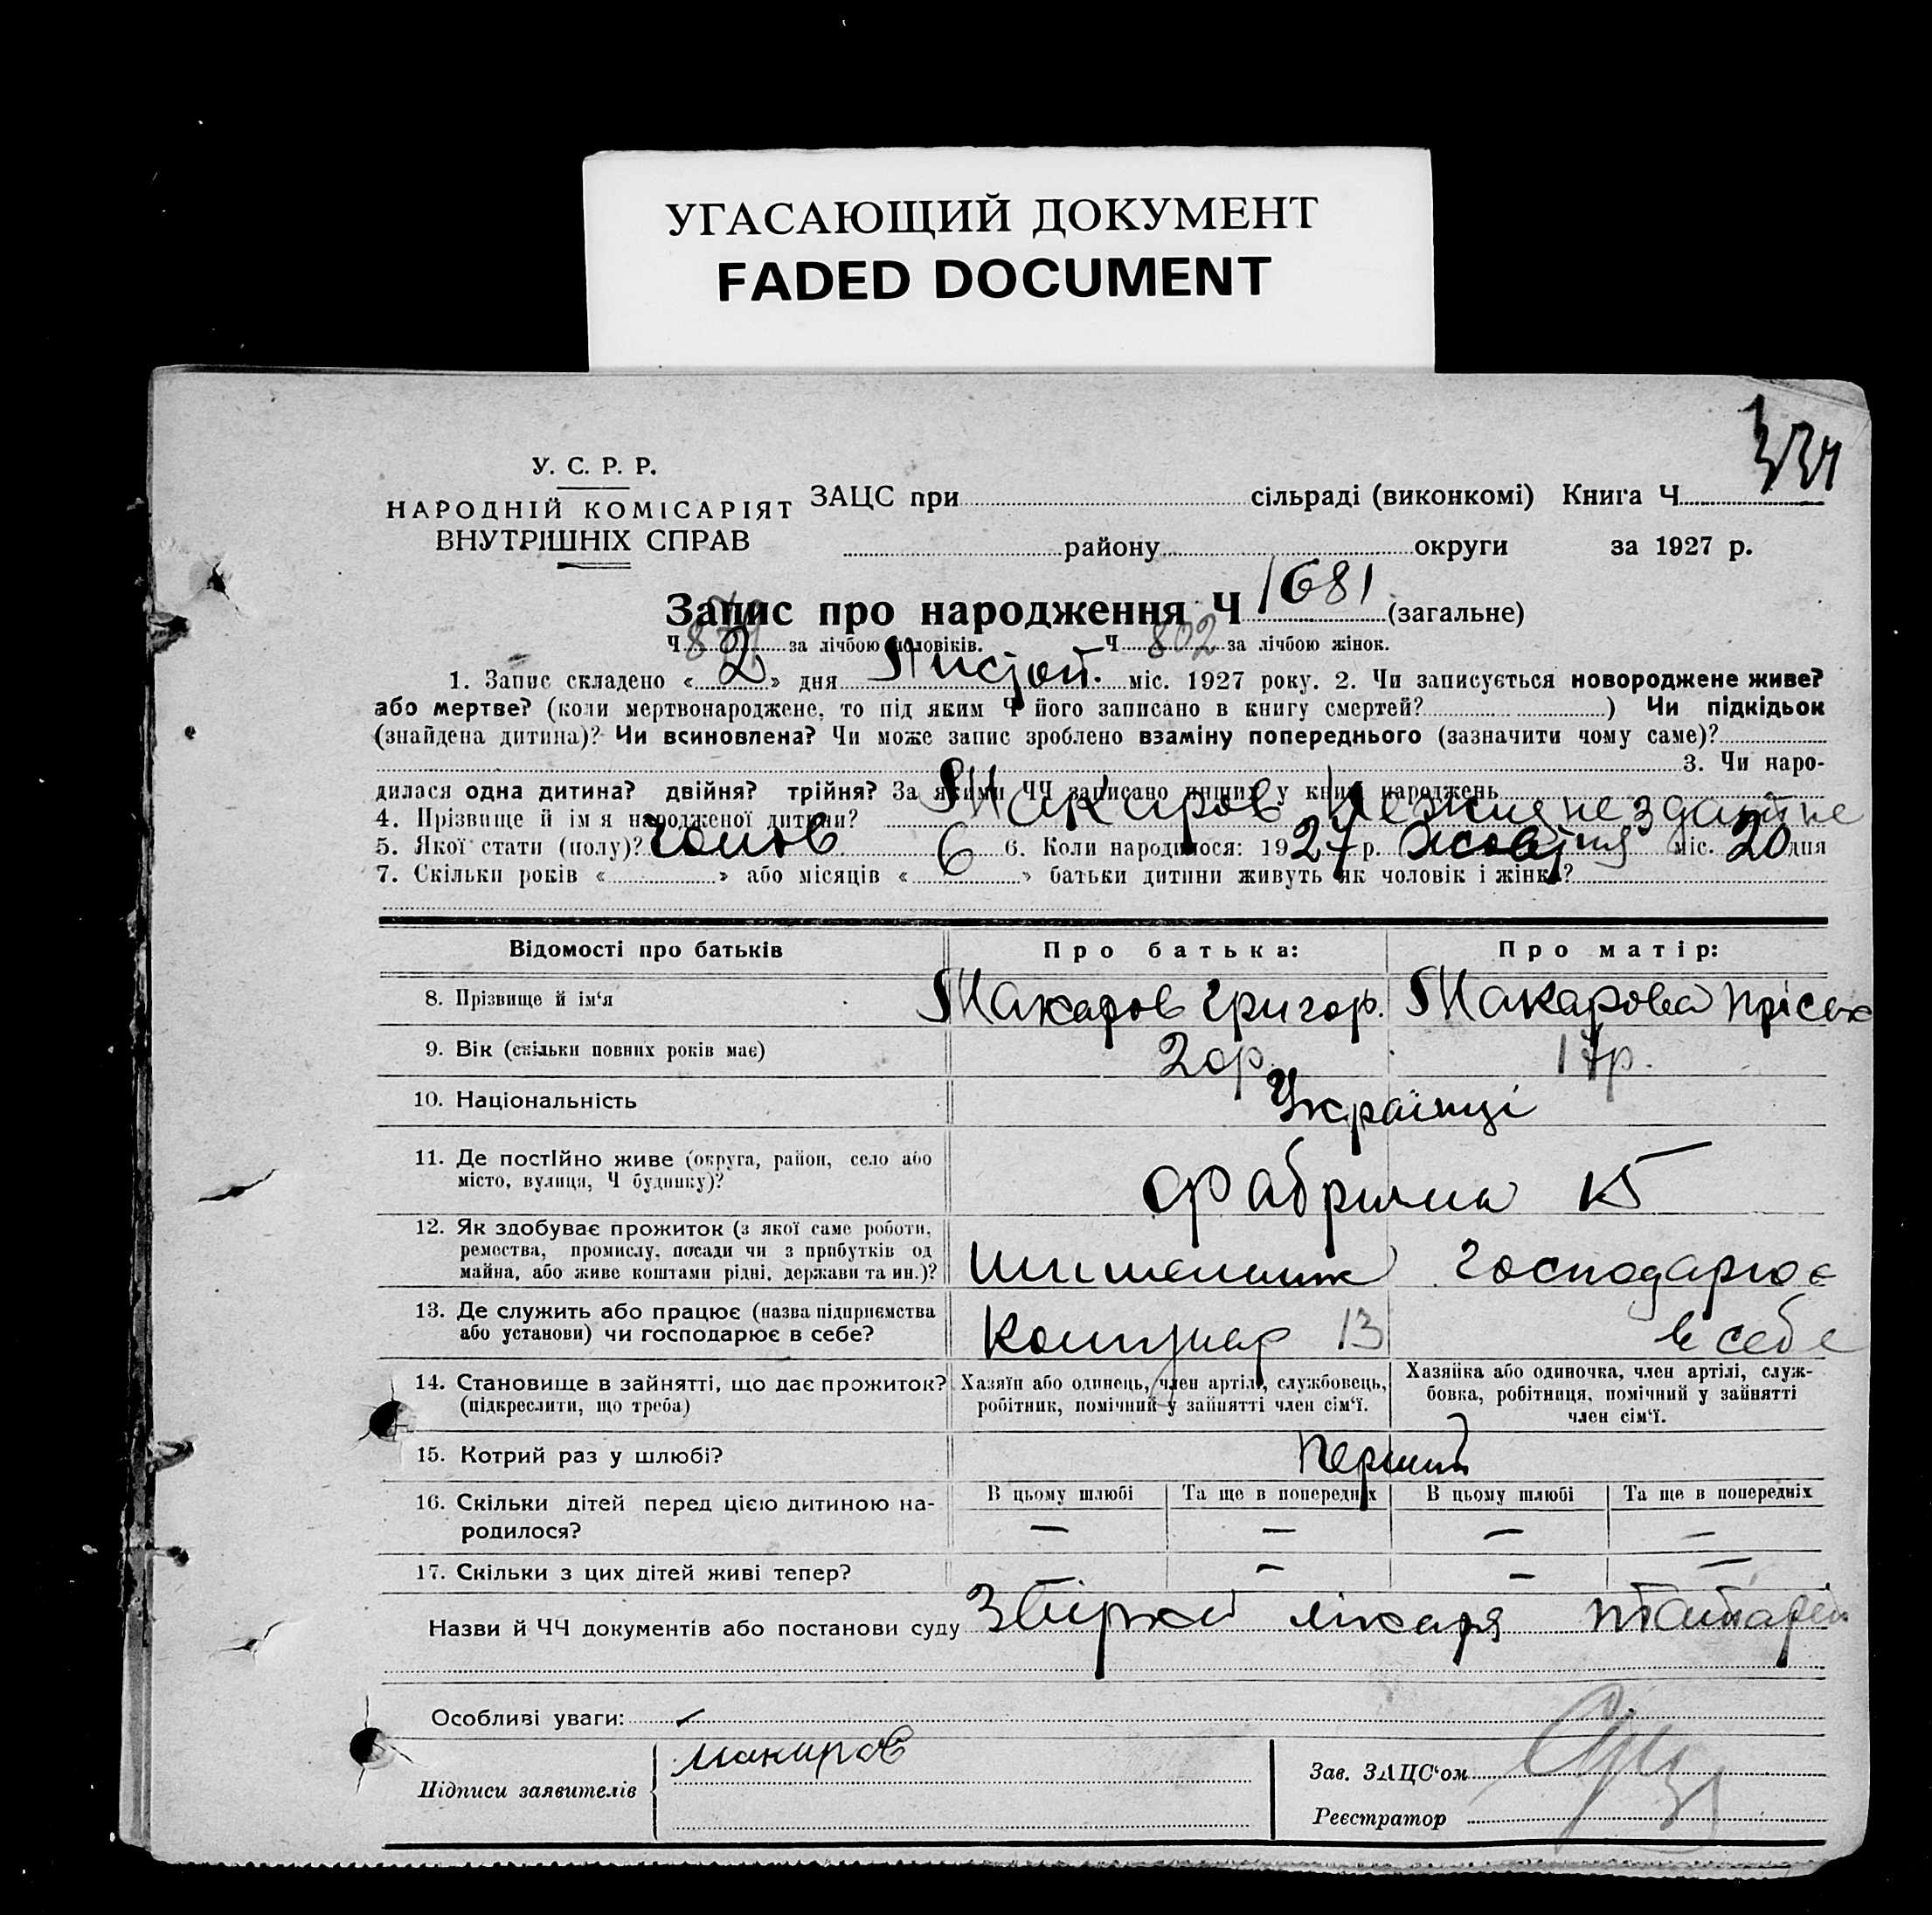 УГАСАЮЩИЙ ДОКУМЕНТ
FADED DOCUMENT
У. С. Р. Р.
НАРОДНІЙ КОМІСАРІЯТ
ВНУТРІШНІХ СПРАВ
ЗАЦС при сільраді (виконкомі) Книга Ч.
району округи за 1927 р.
Запис про народження Ч 1681 (загальне)
Ч за лічбою чоловіків. Ч 802 за лічбою жінок.
1. Запис складено « 2 » дня Листоп. міс. 1927 року. 2. Чи записується новороджене живе?
або мертве? (коли мертвонароджене, то під яким Ч його записано в книгу смертей? ) Чи підкідьок
(знайдена дитина)? Чи всиновлена? Чи може запис зроблено взаміну попереднього (зазначити чому саме)?
3. Чи наро-
дилася одна дитина? двійня? трійня? За якими ЧЧ записано инших у книгу народжень
4. Прізвище й ім я народженої дитини? Макаров Нежиценездатне
5. Якої стати (полу)? чолов 6 6. Коли народилося: 1927 р. жовтня міс. 20 дня
7. Скільки років « » або місяців « » батьки дитини живуть як чоловік і жінка?
Відомості про батьків Про батька: Про матір:
8. Прізвище й ім‘я Макаров Григор. Макарова Пріська
9. Вік (скільки повних років має) 20р. 17р.
10. Національність Українці
11. Де постійно живе (округа, район, село або
місто, вулиця, Ч будинку)? Фабрична 15
12. Як здобуває прожиток (з якої саме роботи,
ремества, промислу, посади чи з прибутків од
майна, або живе коштами рідні, держави та ин.)? господарює
13. Де служить або працює (назва підприємства
або установи) чи господарює в себе? 13 в себе
14. Становище в зайнятті, що дає прожиток?
(підкреслити, що треба)
Хазяїн або одинець, член артілі, службовець,
робітник, помічний у зайнятті член сім‘ї.
Хазяйка або одиночка, член артілі, служ-
бовка, робітниця, помічний у зайнятті
член сім‘ї.
15. Котрий раз у шлюбі? перший
16. Скільки дітей перед цією дитиною на-
родилося?
В цьому шлюбі Та ще в попередніх В цьому шлюбі Та ще в попередніх
— — — —
17. Скільки з цих дітей живі тепер? — — —
Назви й ЧЧ документів або постанови суду лікаря
Особливі уваги: —
Підписи заявителів макаров
Зав. ЗАЦС‘ом
Реєстратор